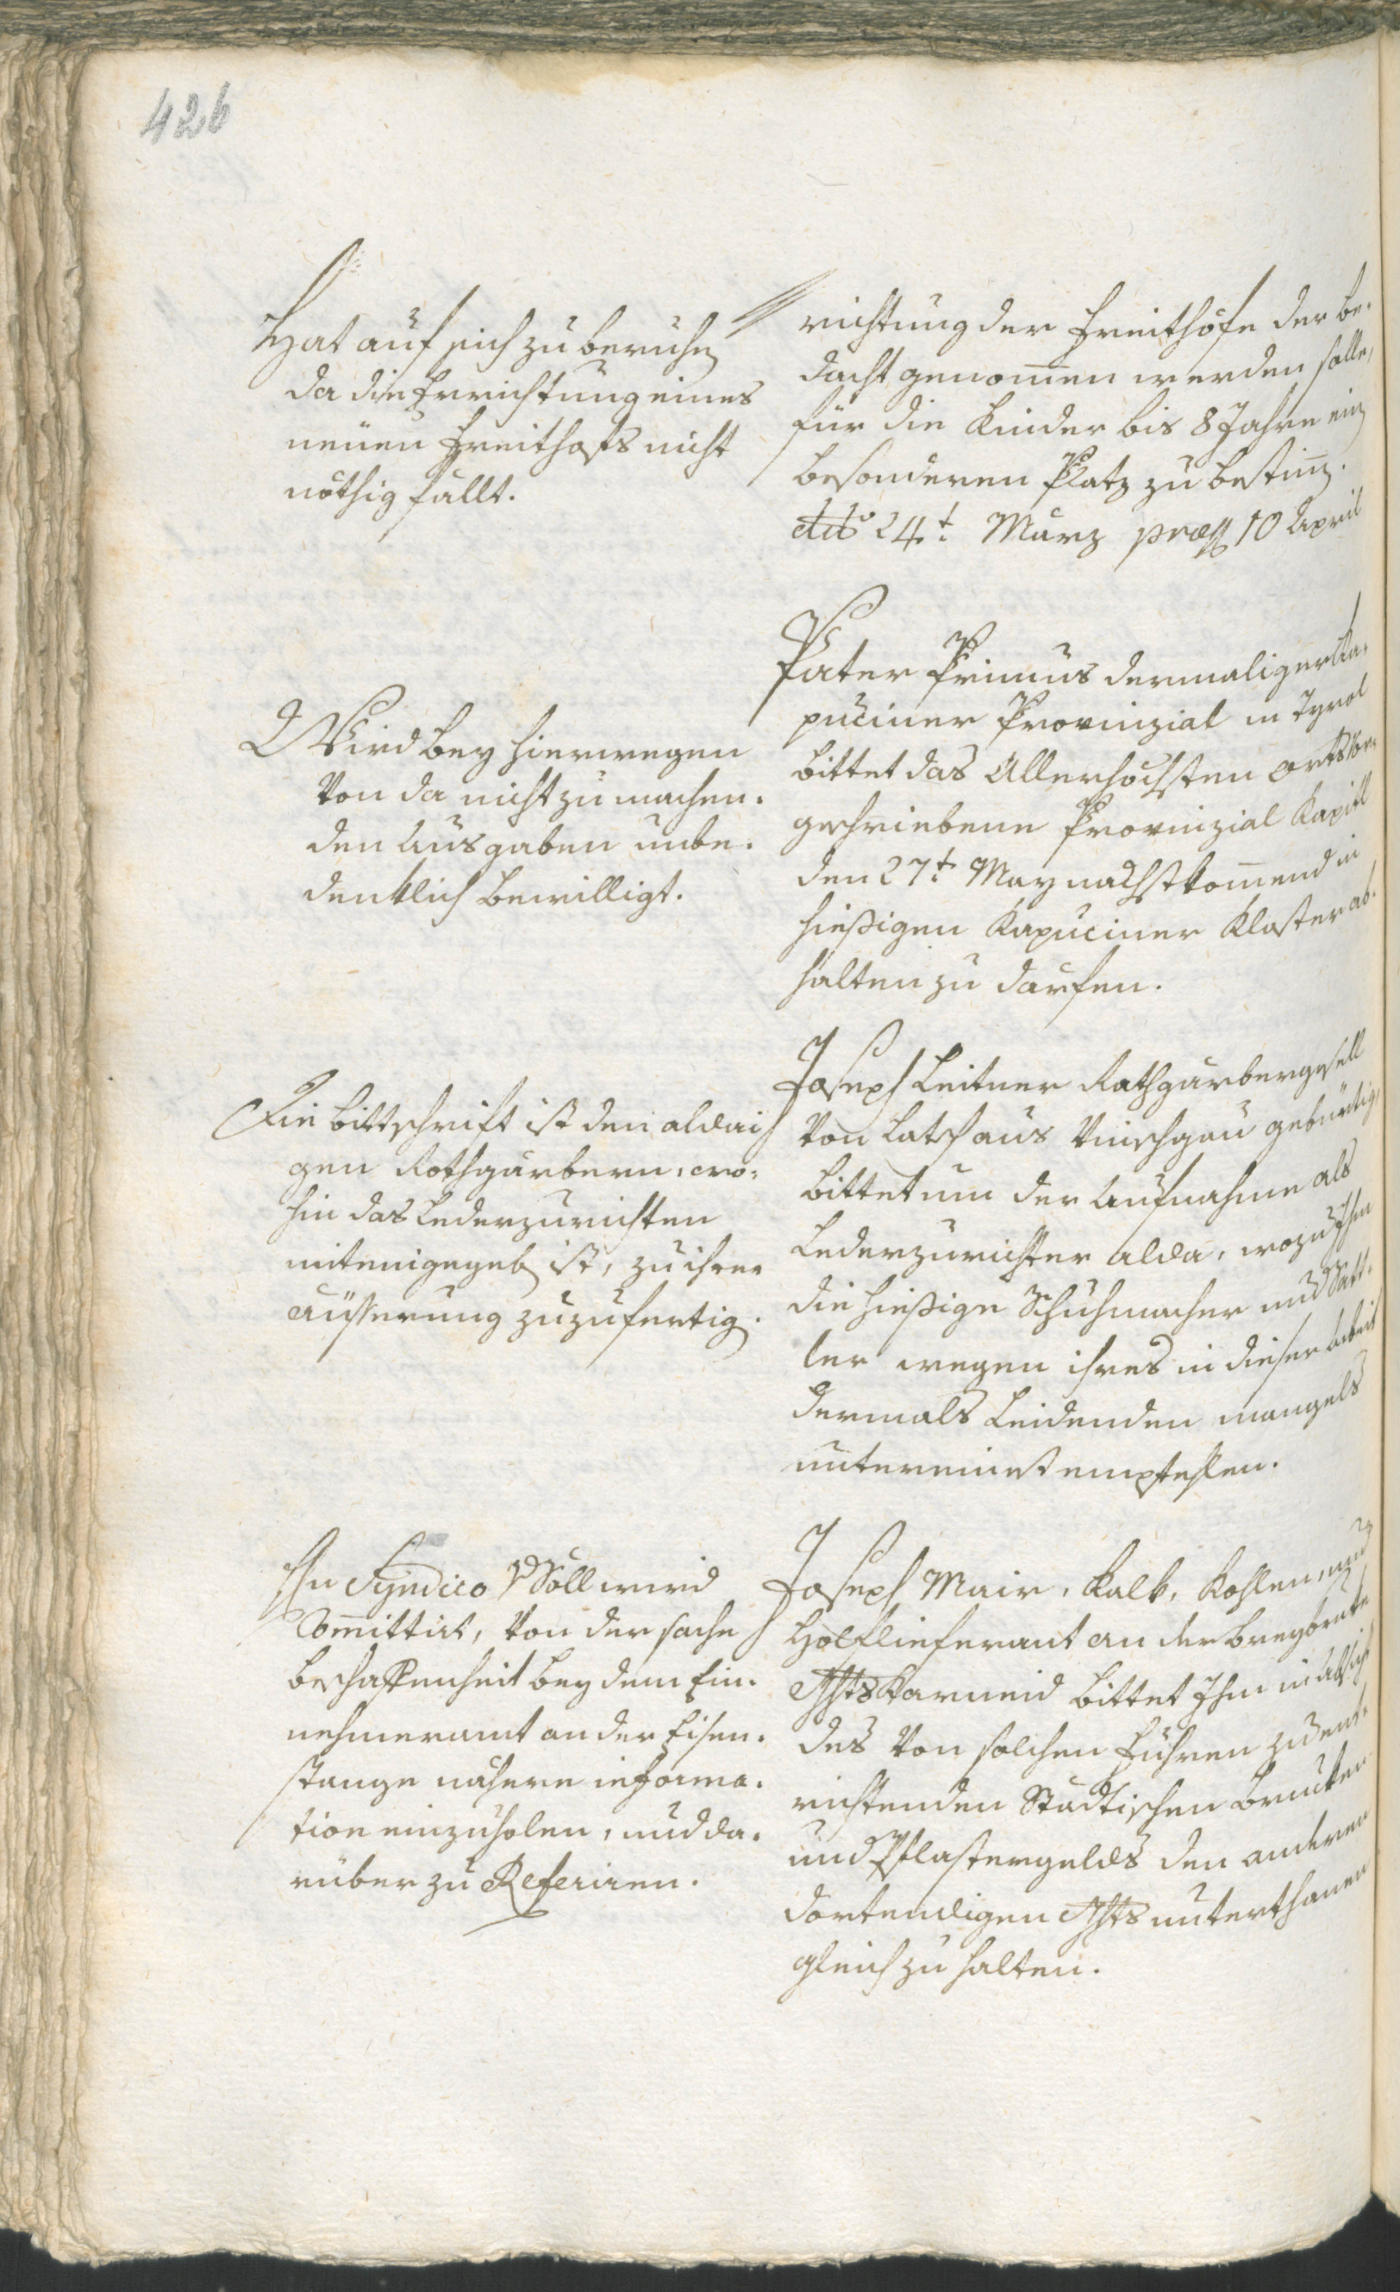 426
Hat auf sich zu beruhen
da die Errichtung eines
neuen Freithofs nicht
nöthig fallt.
richtung der Freithöfe der be-
dacht genommen werden solle,
für die Kinder bis 8 Jahre ein
besonderen Platz zu bestim̄.
dto 24t. März præs 10 April
Wird bey hierwegen
von da nicht zu machen-
den Ausgaben unbe-
denklich bewilligt.
Pater Primus dermaliger Ka-
puciner Provinzial in Tyrol
bittet das Allerhöchsten orts vor-
geschriebene Provinzial Kapitl
den 27t. May nächstkom̄end in
hießigen Kapuciner Kloster ab-
halten zu därfen.
Die bittschrift ist den aldai-
gen Rothgärbern, wo-
hin das Lederzurichten
miteingegeb ist, zu ihrer
äusserung zuzufertig.
Joseph Leitner Rothgärbergesell
von Latsch aus Vinschgau gebürtig,
bittet um der Aufnahme als
Lederzurichter alda, wozu Ihn
die hießige Schuhmacher und Satt-
ler wegen ihres in dieser Arbeit
dermals Leidenden mangels
untereinest empfehlen.
Hn Syndico v Söll wird
Com̄ittirt, von der sache
beschaffenheit bey dem Ein-
nehmeramt an der Eisen-
stange nähere informa-
tion einzuholen, und da-
rüber zu Referiren.
Joseph Mair, Kalk, Kohlen, und
Holzlieferant an der
Ghts Karneid bittet Ihm in Absicht
des von solchen Fuhren zu ent-
richtenden Städtischen Brucken
und Pflastergelds den anderen
dortendigen Ghts unterthanen
gleich zu halten.